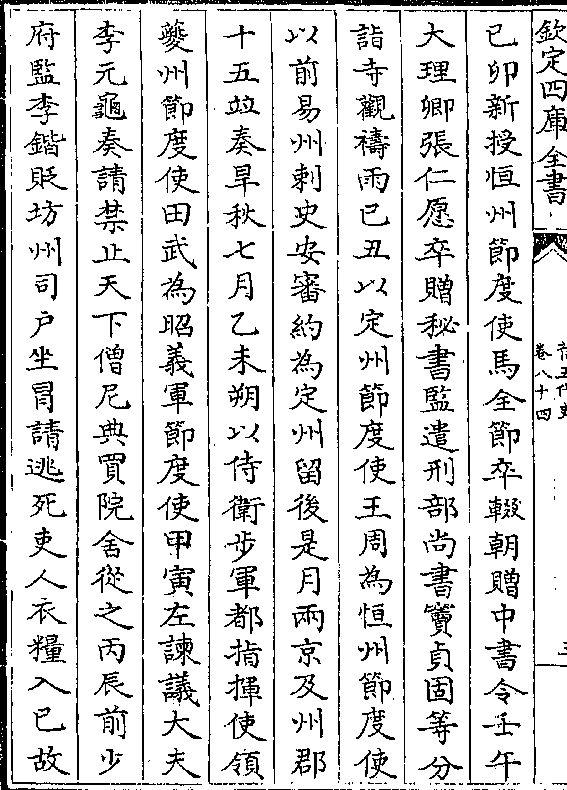 欽定四庫全書
舊五代史
卷八十四
三
己卯新授恒州節度使馬全節卒輟朝贈中書令壬午
大理卿張仁愿卒贈秘書監遣刑部尚書竇貞固等分
詣寺觀禱雨己丑以定州節度使王周為恒州節度使
以前易州刺史安審約為定州留後是月兩京及州郡
十五並奏旱秋七月乙未朔以侍衛步軍都指揮使領
夔州節度使田武為昭義軍節度使甲寅左諫議大夫
李元龜奏請禁止天下僧尼典買院舍從之丙辰前少
府監李鍇貶坊州司户坐冒請逃死吏人衣糧入已故